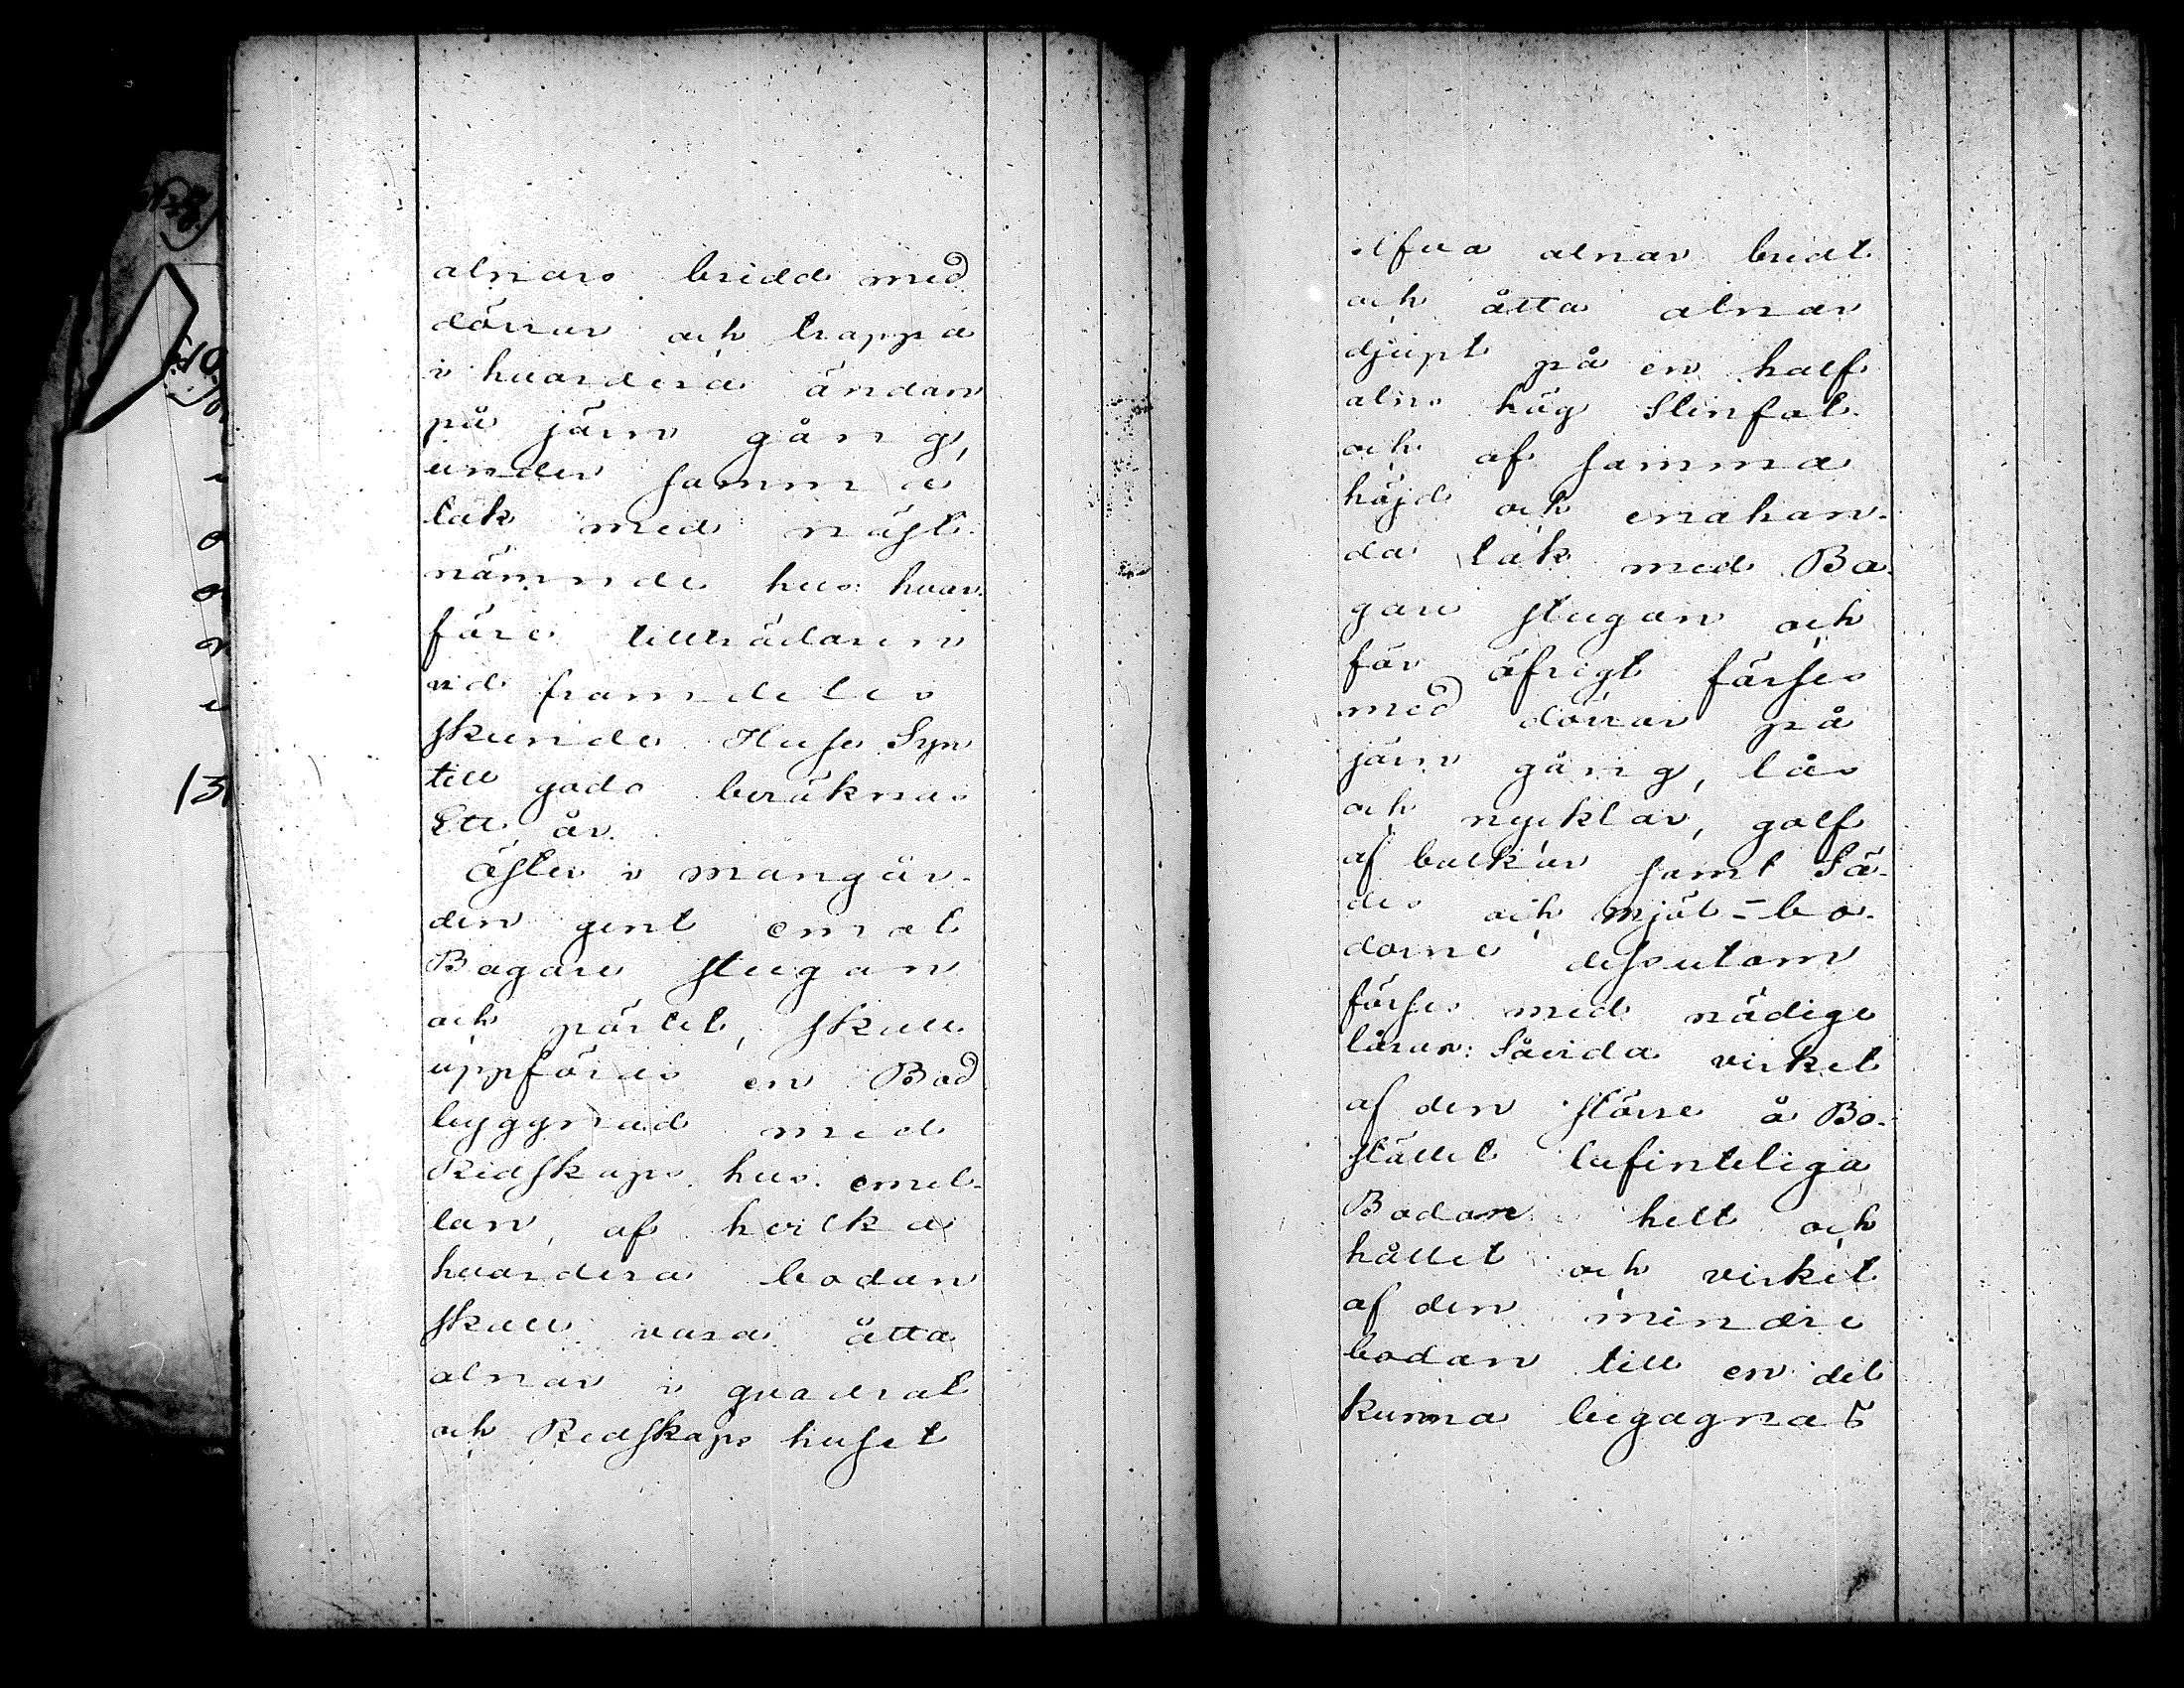 alnars bridd med
dörrar och trappa
i hvardera ändan
på järn gång,
under samma
tak med näst-
nämnde hus: hvar-
före tillträdaren
vid framdeles
skeende Huse Syn
till godo beräknas
Ett år.
Öster i mangår-
den gent emot
Bagare stugan
och pörtet, skall
uppföras en Bod
byggnad med
Redskaps hus emel-
lan, af hvilka
hvardera bodan
skall vara åtta
alnar i qvadrat
och Redskaps huset
elfva alnar bredt
och åtta alnar
djupt på en half
alns hög Stenfot
och af samma
höjd och enahan-
da tak med Ba-
gare stugan och
för öfrigt förses
med dörrar på
järn gång, lås
och nycklar, golf
af balkar samt Sä-
des och mjöl-bo-
dorne dessutom
förses med nödige
lårar: Såvida virket
af den större å Bo-
stället befinteliga
Bodan helt och
hållet och virket
af den mindre
bodan till en del
kunna begagnas